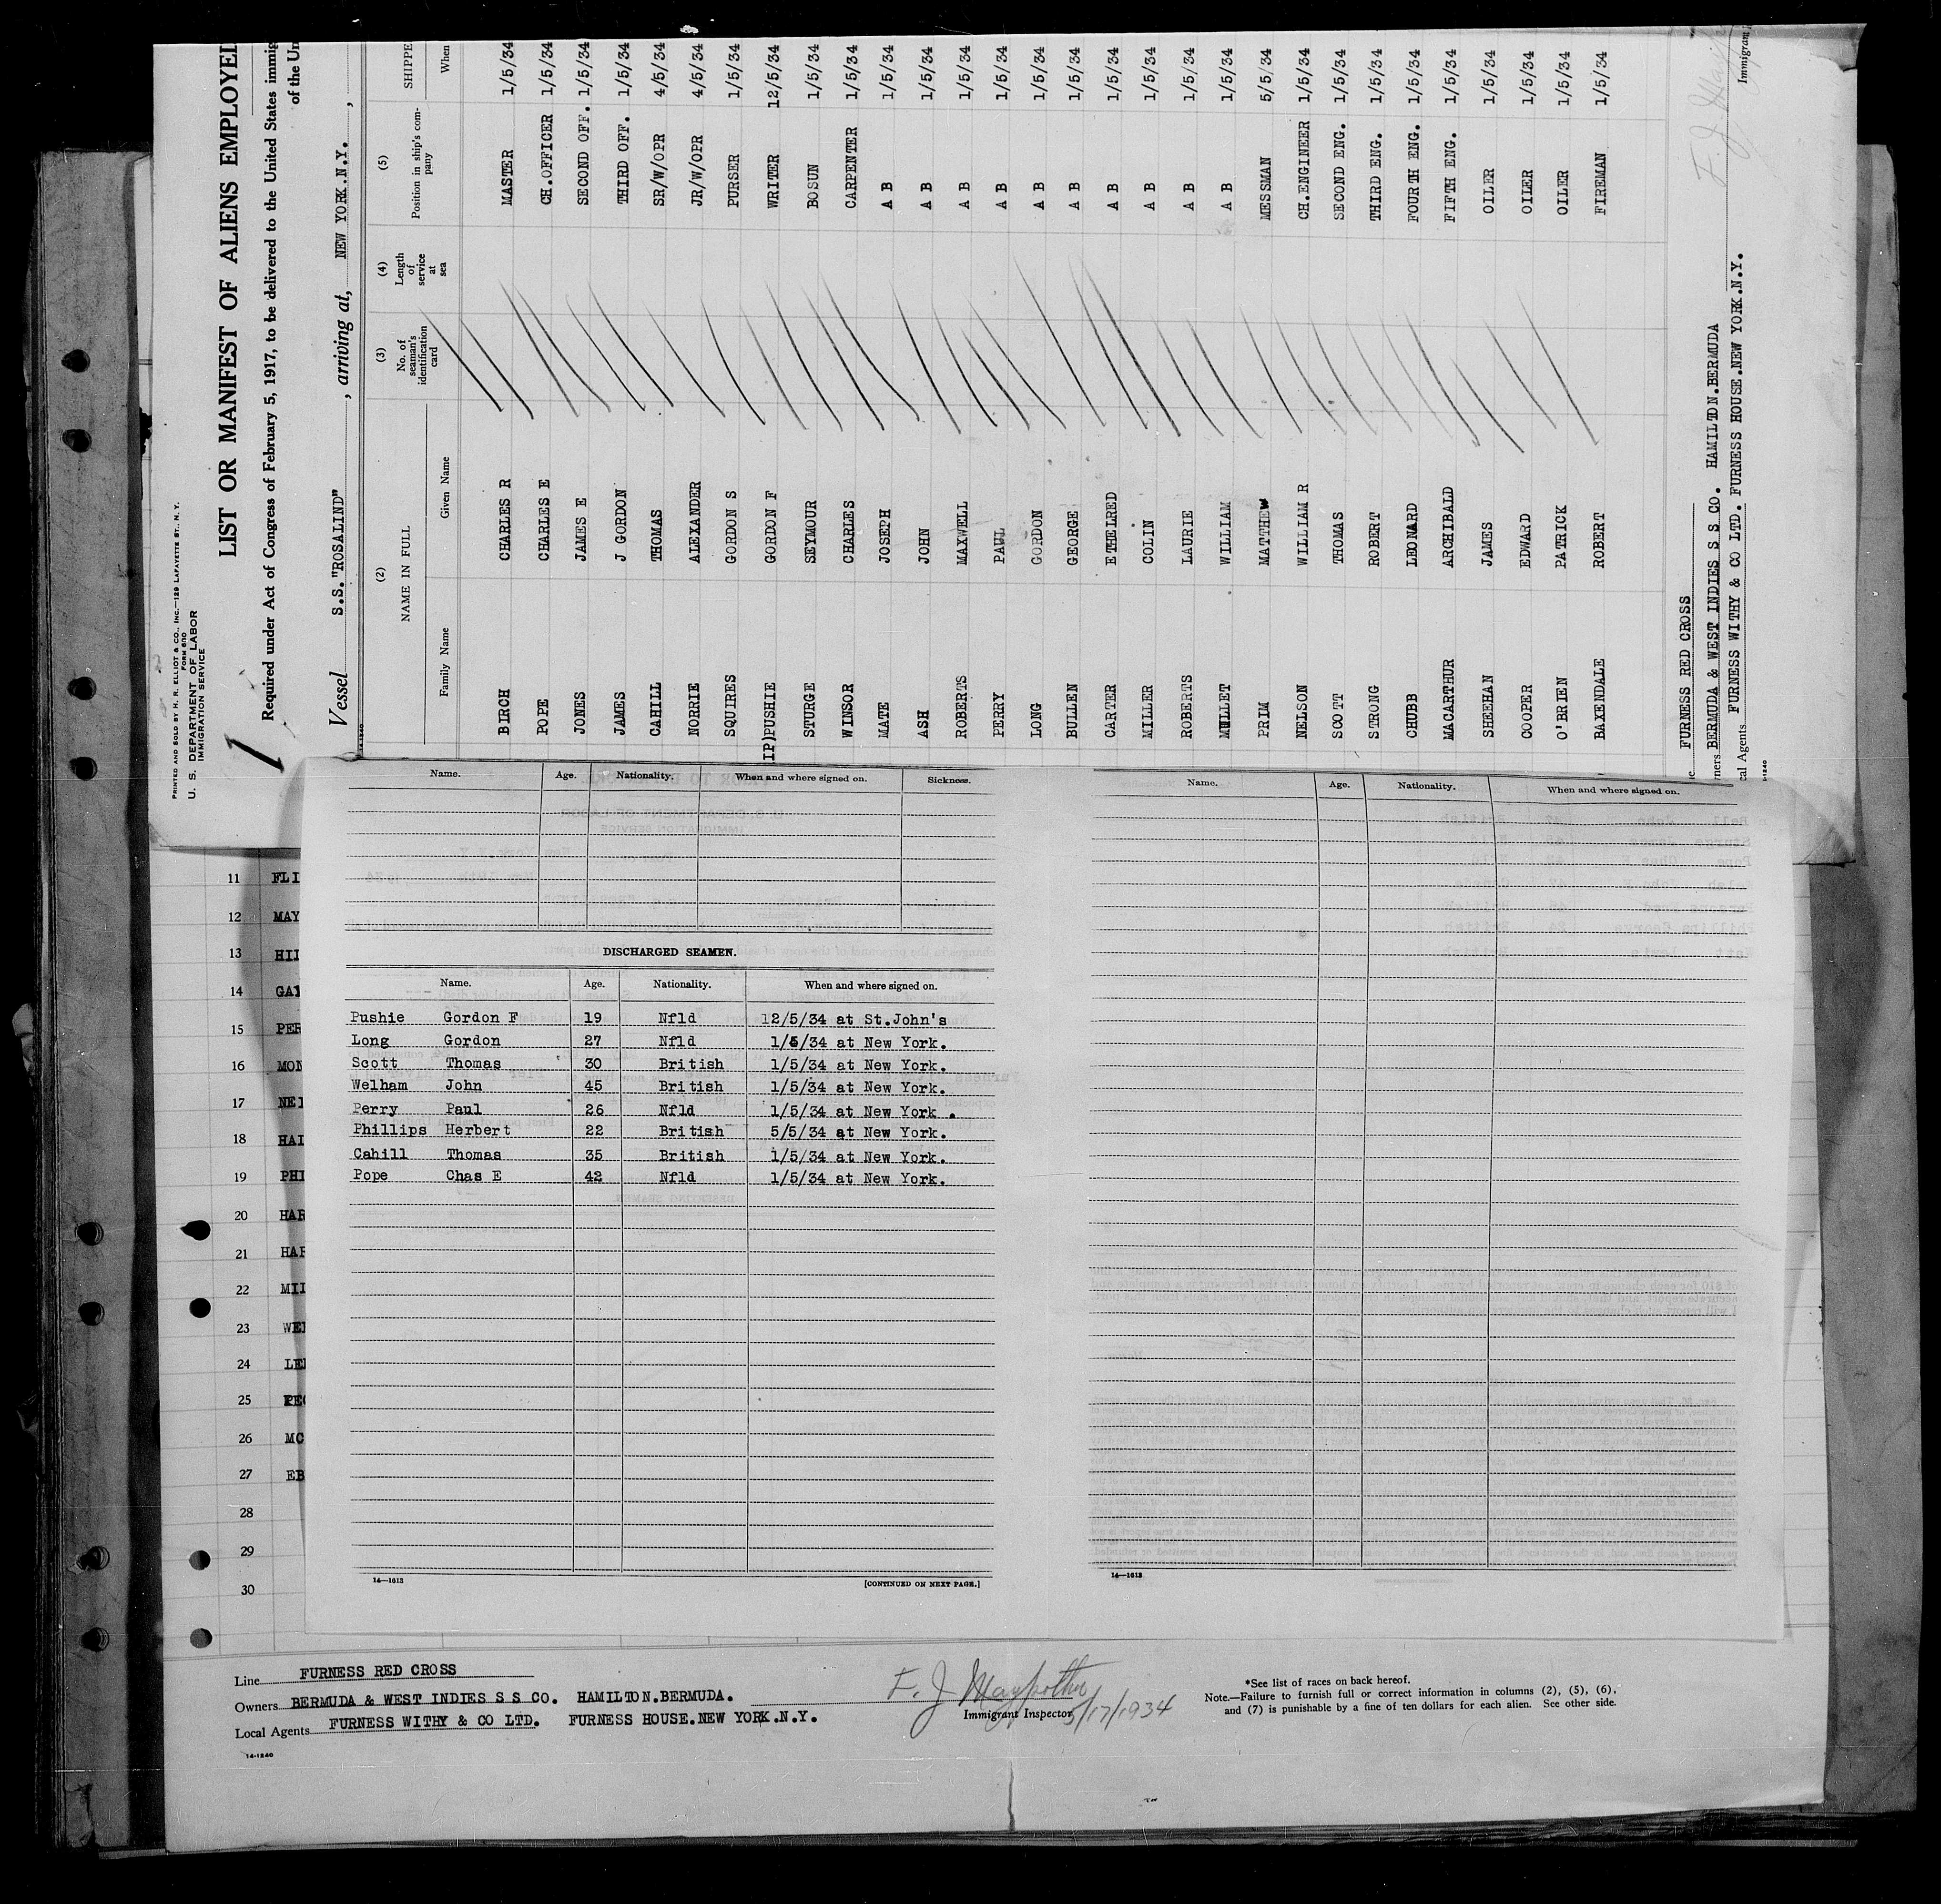 PRINTED AND SOLD BY H. R. ELLIOT & CO., INC.—129 LAFAYETTE ST., N. Y.
FORM 630
U. S. DEPARTMENT OF LABOR
IMMIGRATION SERVICE
LIST OR MANIFEST OF ALIENS EMPLOYED
Required under Act of Congress of February 5, 1917, to be delivered to the United States immig
of the Un
Vessel S.S."ROSALIND", arriving at, NEW YORK.N.Y.,
(2) (3) (4) (5) SHIPPE
NAME IN FULL No. of seaman's identification card Length of service at sea Position in ship's company
Family Name Given Name When
BIRCH CHARLES R MASTER 1/5/34
POPE CHARLES E CH.OFFICER 1/5/34
JONES JAMES E SECOND OFF. 1/5/34
JAMES J GORDON THIRD OFF. 1/5/34
CAHILL THOMAS SR/W/OPR 4/5/34
NORRIE ALEXANDER JR/W/OPR 4/5/34
SQUIRES GORDON S PURSER 1/5/34
IP)PUSHIE GORDON F WRITER 12/5/34
STURGE SEYMOUR BOSUN 1/5/34
WINSOR CHARLES CARPENTER 1/5/34
MATE JOSEPH A B 1/5/34
ASH JOHN A B 1/5/34
ROBERTS MAXWELL A B 1/5/34
PERRY PAUL A B 1/5/34
LONG GORDON A B 1/5/34
BULLEN GEORGE A B 1/5/34
CARTER ETHELRED A B 1/5/34
MILLER COLIN A B 1/5/34
ROBERTS LAURIE A B 1/5/34
MULLET WILLIAM A B 1/5/34
PRIM MATTHEW MESSMAN 5/5/34
NELSON WILLIAM R CH.ENGINEER 1/5/34
SCOTT THOMAS SECOND ENG. 1/5/34
STRONG ROBERT THIRD ENG. 1/5/34
CHUBB LEONARD FOURTH ENG. 1/5/34
MACARTHUR ARCHIBALD FIFTH ENG. 1/5/34
SHEEHAN JAMES OILER 1/5/34
COOPER EDWARD OILER 1/5/34
O'BRIEN PATRICK OILER 1/5/34
BAXENDALE ROBERT FIREMAN 1/5/34
ne FURNESS RED CROSS
ners BERMUDA & WEST INDIES S S CO. HAMILTON.BERMUDA
cal Agents FURNESS WITHY & CO LTD. FURNESS HOUSE.NEW YORK.N.Y.
F. J. May
Immigrant
Name. Age. Nationality. When and where signed on. Sickness.
Name. Age. Nationality. When and where signed on.
DISCHARGED SEAMEN.
Name. Age. Nationality. When and where signed on.
Pushie Gordon F 19 Nfld 12/5/34 at St.John's
Long Gordon 27 Nfld 1/5/34 at New York.
Scott Thomas 30 British 1/5/34 at New York.
Welham John 45 British 1/5/34 at New York.
Perry Paul 26 Nfld 1/5/34 at New York .
Phillips Herbert 22 British 5/5/34 at New York.
Cahill Thomas 35 British 1/5/34 at New York.
Pope Chas E 42 Nfld 1/5/34 at New York.
14—1613 [CONTINUED ON NEXT PAGE.]
14—1613
11 FLI
12 MAY
13 HII
14
15 PER
16 MON
17 NEI
18 HAI
19 PHI
20 HAR
21 HAR
22 MII
23
24
25
26 MC
27 EB
28
29
30
Line FURNESS RED CROSS
Owners BERMUDA & WEST INDIES S S CO. HAMILTON.BERMUDA.
Local Agents FURNESS WITHY & CO LTD. FURNESS HOUSE.NEW YORK.N.Y.
14-1240
F. J. 5/17/1934
Immigrant Inspector
*See list of races on back hereof.
Note.—Failure to furnish full or correct information in columns (2), (5), (6),
and (7) is punishable by a fine of ten dollars for each alien. See other side.